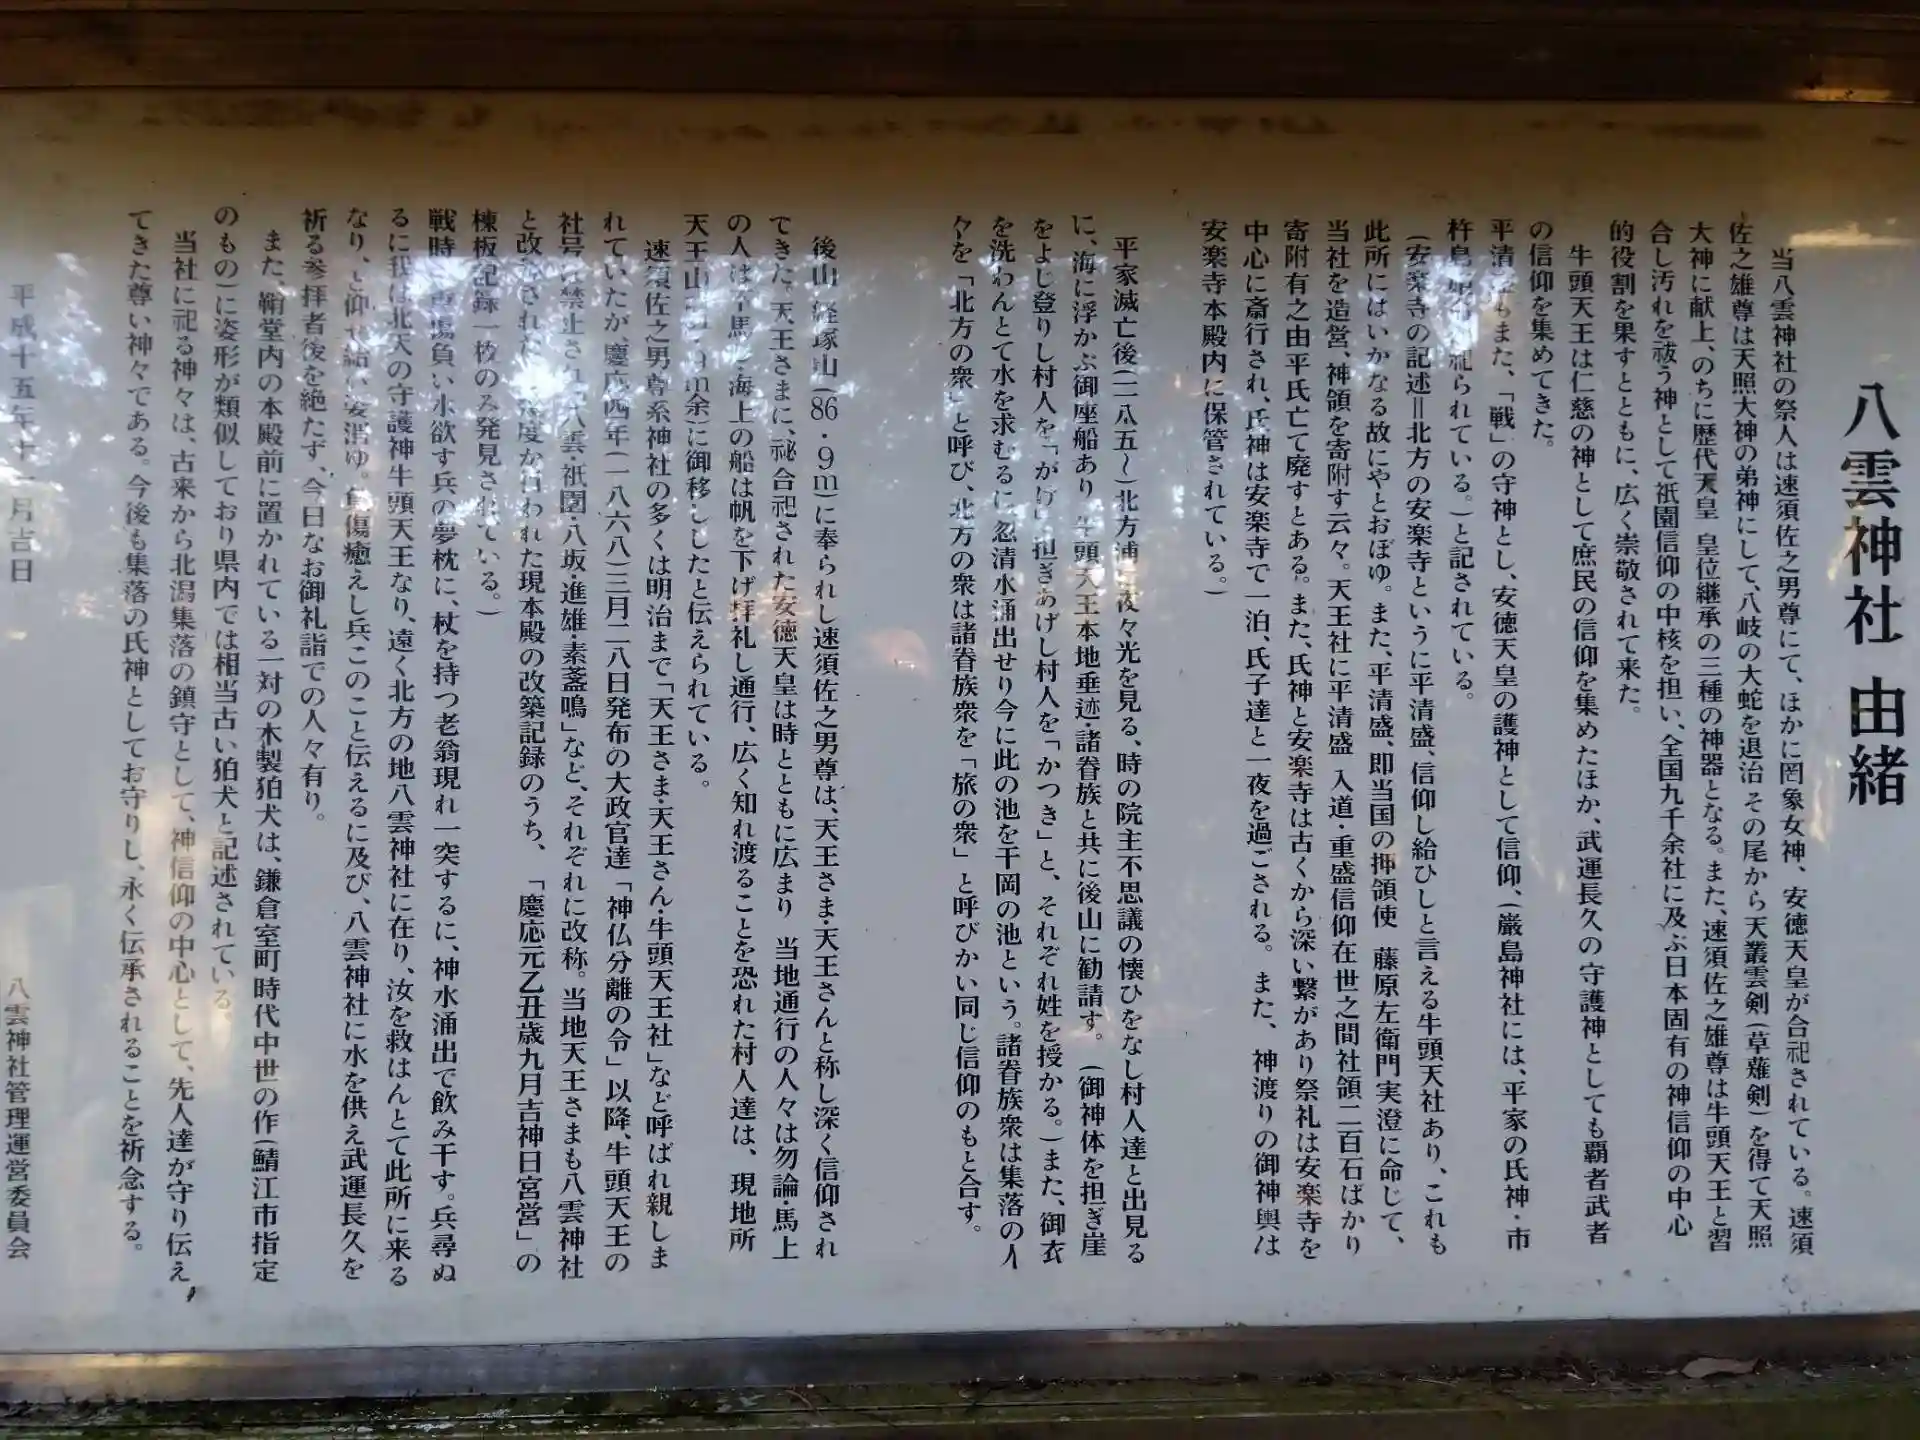 八雲神社 由緒
当八雲神社の祭人は速須佐之男尊にて、ほかに罔象女神、安徳天皇が合祀されている。速須
佐之雄尊は天照大神の弟神にして、八岐の大蛇を退治 その尾から天叢雲剣(草薙剣)を得て天照
大神に献上、のちに歴代天皇 皇位継承の三種の神器となる。また、速須佐之雄尊は牛頭天王と習
合し汚れを祓う神として祇園信仰の中核を担い、全国九千余社に及ぶ日本固有の神信仰の中心
的役割を果すとともに、広く崇敬されて来た。
牛頭天王は仁慈の神として庶民の信仰を集めたほか、武運長久の守護神としても覇者武者
の信仰を集めてきた。
平清盛もまた、「戦」の守神とし、安徳天皇の護神として信仰、(厳島神社には、平家の氏神・市
杵島姫命が祀られている。)と記されている。
(安楽寺の記述=北方の安楽寺というに平清盛、信仰し給ひしと言える牛頭天社あり、これも
此所にはいかなる故にやとおぼゆ。また、平清盛、即当国の押領使 藤原左衛門実澄に命じて、
当社を造営、神領を寄附す云々。天王社に平清盛 入道・重盛信仰在世之間社領二百石ばかり
寄附有之由平氏亡て廃すとある。また、氏神と安楽寺は古くから深い繋があり祭礼は安楽寺を
中心に斎行され、氏神は安楽寺で一泊、氏子達と一夜を過ごされる。また、神渡りの御神輿は
安楽寺本殿内に保管されている。)
平家滅亡後(一一八五〜)北方浦に夜々光を見る、時の院主不思議の懐ひをなし村人達と出見る
に、海に浮かぶ御座船あり 牛頭天王本地垂迹・諸眷族と共に後山に勧請す。(御神体を担ぎ崖
をよじ登りし村人を「がけ」担ぎあげし村人を「かつき」と、それぞれ姓を授かる。)また、御衣
を洗わんとて水を求むるに忽清水涌出せり今に此の池を干岡の池という。諸眷族衆は集落の人
々を「北方の衆」と呼び、北方の衆は諸眷族衆を「旅の衆」と呼びかい同じ信仰のもと合す。
後山 経塚山(86・9m)に奉られし速須佐之男尊は、天王さま・天王さんと称し深く信仰され
てきた。天王さまに、祕合祀された安徳天皇は時とともに広まり 当地通行の人々は勿論・馬上
の人は下馬し、海上の船は帆を下げ拝礼し通行、広く知れ渡ることを恐れた村人達は、現地所
天王山 m余)に御移ししたと伝えられている。
速須佐之男尊系神社の多くは明治まで「天王さま・天王さん・牛頭天王社」など呼ばれ親しま
れていたが、慶応四年(一八六八)三月二八日発布の大政官達「神仏分離の令」以降、牛頭天王の
社号は禁止され「八雲・祇園・八坂・進雄・素盞鳴」など、それぞれに改称。当地天王さまも八雲神社
と改称された。 度か行われた現本殿の改築記録のうち、「慶応元乙丑歳九月吉神日宮営」の
棟板記録一枚のみ発見されている。)
戦時 傷負い水欲す兵の夢枕に、杖を持つ老翁現れ一突するに、神水涌出で飲み干す。兵尋ぬ
るに我は北天の守護神牛頭天王なり、遠く北方の地八雲神社に在り、汝を救はんとて此所に来る
なり、と仰せ給い姿消ゆ。負傷癒えし兵このこと伝えるに及び、八雲神社に水を供え武運長久を
祈る参拝者後を絶たず、今日なお御礼詣での人々有り。
また、鞘堂内の本殿前に置かれている一対の木製狛犬は、鎌倉室町時代中世の作(鯖江市指定
のもの)に姿形が類似しており県内では相当古い狛犬と記述されている。
当社に祀る神々は、古来から北潟集落の鎮守として、神信仰の中心として、先人達が守り伝え
てきた尊い神々である。今後も集落の氏神としてお守りし、永く伝承されることを祈念する。
平成十五年十一月吉日
八雲神社管理運営委員会